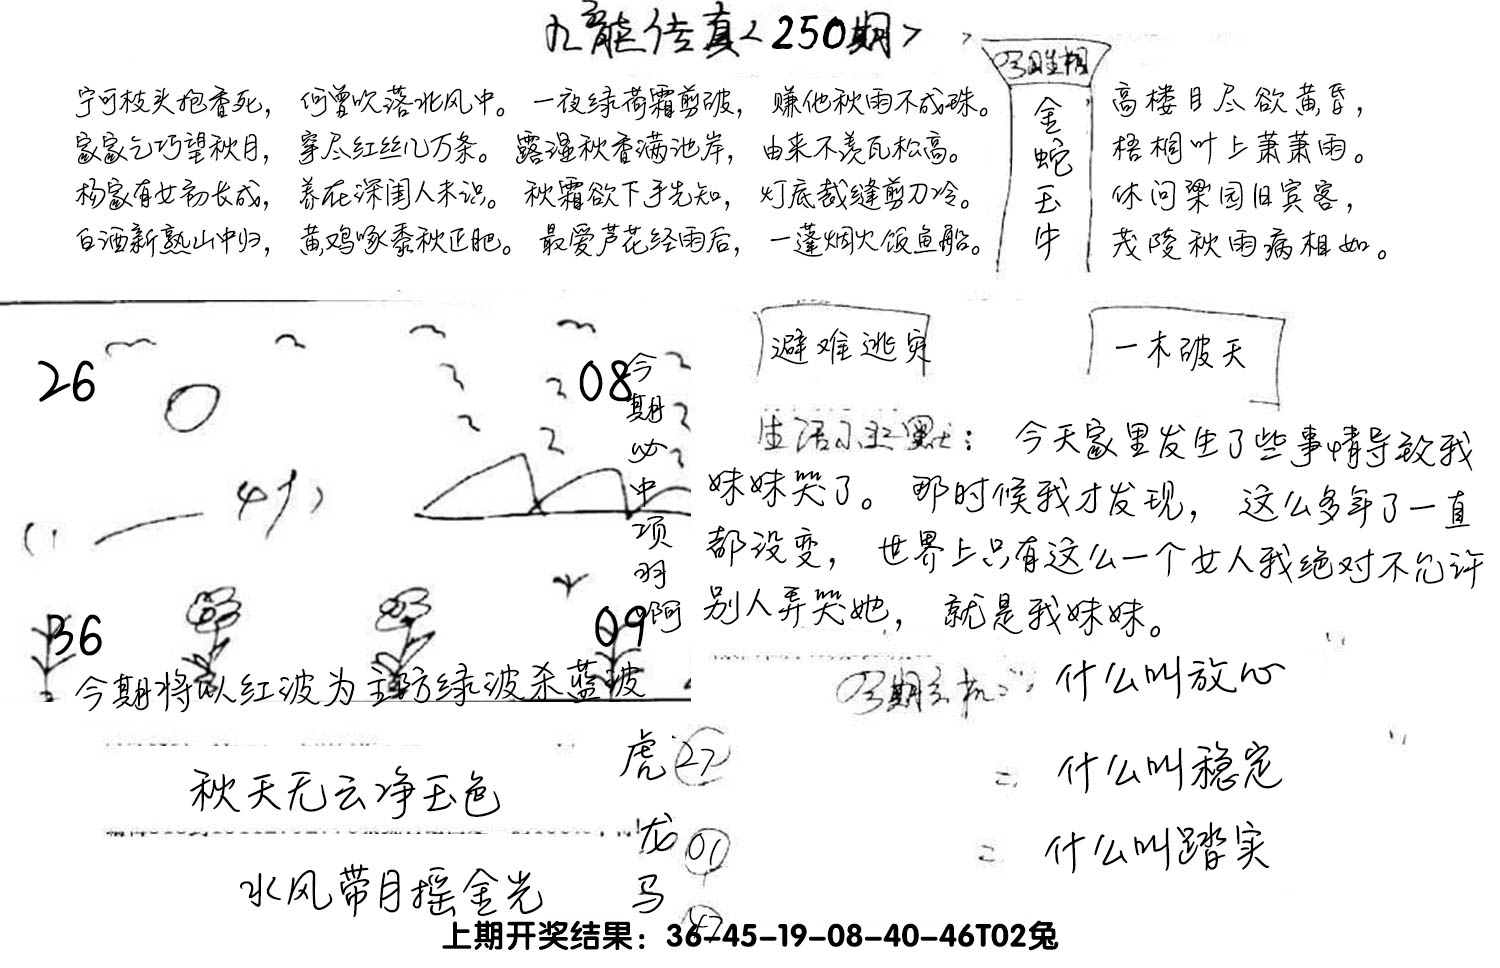 九龙传真<250期>
宁可枝头抱香死， 何曾吹落北风中。 一夜绿荷霜剪破， 赚他秋雨不成珠。
家家乞巧望秋月， 穿尽红丝几万条。 露湿秋香满池岸， 由来不羡瓦松高。
杨家有女初长成， 养在深闺人未识。 秋霜欲下手先知， 灯底裁缝剪刀冷。
白酒新熟山中归， 黄鸡啄黍秋正肥。 最爱芦花经雨后， 一蓬烟火饭鱼船。
金蛇玉牛
高楼目尽欲黄昏，
梧桐叶上萧萧雨。
休问梁园旧宾客，
茂陵秋雨病相如。
避难逃灾
一木破天
26
08
36
09
今期必中项羽啊
今期将以红波为主防绿波杀蓝波
生活小幽默： 今天家里发生了些事情导致我
妹妹哭了。那时候我才发现， 这么多年了一直
都没变， 世界上只有这么一个女人我绝对不允许
别人弄哭她， 就是我妹妹。
什么叫放心
什么叫稳定
什么叫踏实
秋天无云净玉色
水风带月摇金光
虎 27
龙 01
马
上期开奖结果：36-45-19-08-40-46T02兔